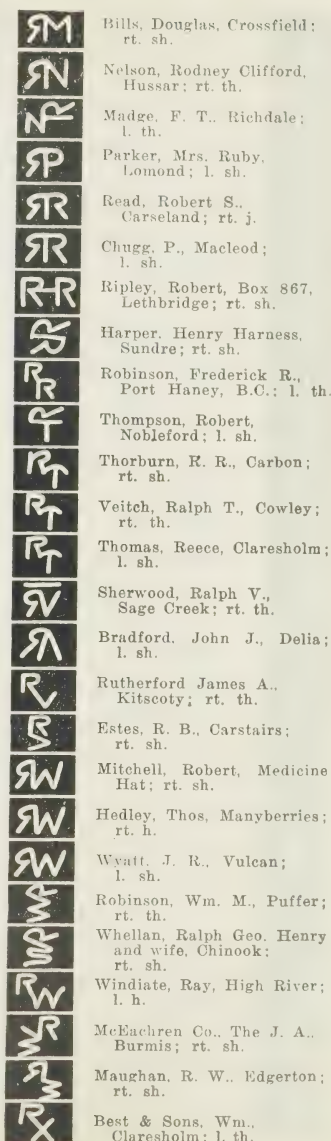 Bills, Douglas, Crossfield;
rt. sh.
Nelson, Rodney Clifford,
Hussar; rt. th.
Madge, F. T., Richdale;
l. th.
Parker, Mrs. Ruby,
Lomond; l. sh.
Read, Robert S.,
Carseland; rt. j.
Chugg, P., Macleod;
l. sh.
Ripley, Robert, Box 867,
Lethbridge; rt. sh.
Harper, Henry Harness,
Sundre; rt. sh.
Robinson, Frederick R.,
Port Haney, B.C.; l. th.
Thompson, Robert,
Nobleford; l. sh.
Thorburn, R. R., Carbon;
rt. sh.
Veitch, Ralph T., Cowley;
rt. th.
Thomas, Reece, Claresholm;
l. sh.
Sherwood, Ralph V.,
Sage Creek; rt. th.
Bradford, John J., Delia;
l. sh.
Rutherford James A.,
Kitscoty; rt. th.
Estes, R. B., Carstairs;
rt. sh.
Mitchell, Robert, Medicine
Hat; rt. sh.
Hedley, Thos, Manyberries;
rt. h.
Wyatt, J. R., Vulcan;
l. sh.
Robinson, Wm. M., Puffer;
rt. th.
Whellan, Ralph Geo. Henry
and wife, Chinook;
rt. sh.
Windiate, Ray, High River;
l. h.
McEachren Co., The J. A.,
Burmis; rt. sh.
Maughan, R. W., Edgerton;
rt. sh.
Best & Sons, Wm.,
Claresholm; l. th.